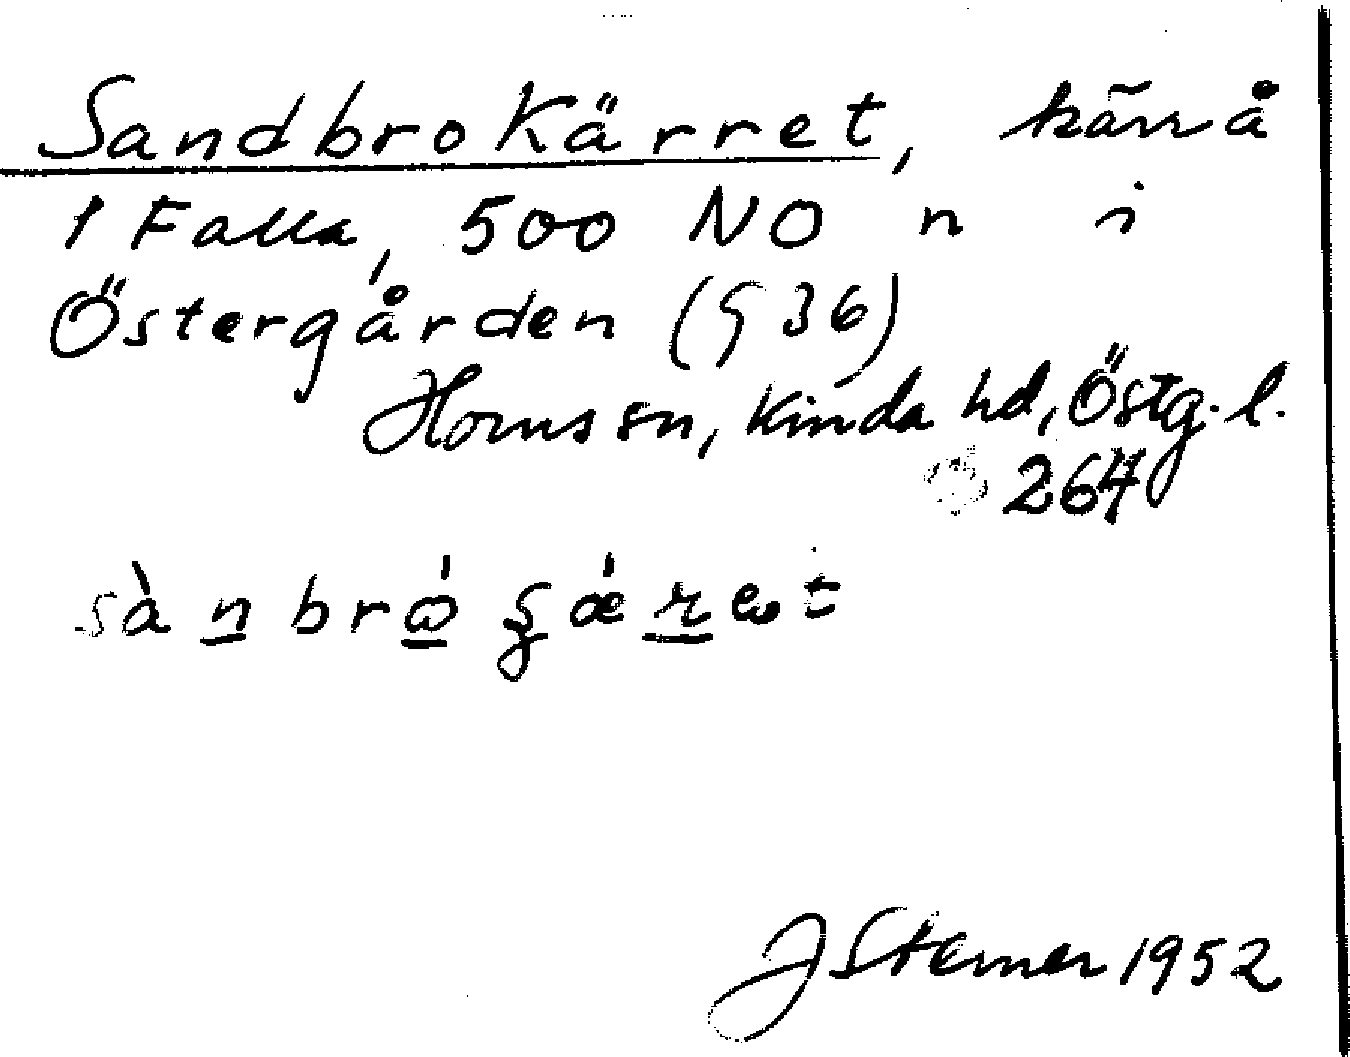 Sandbrokärret, kärr å
1 Falla, 500 NO n i
Östergården (§ 36)
Horns sn, Kinda hd, Östg. l.
264
J Sterner 1952